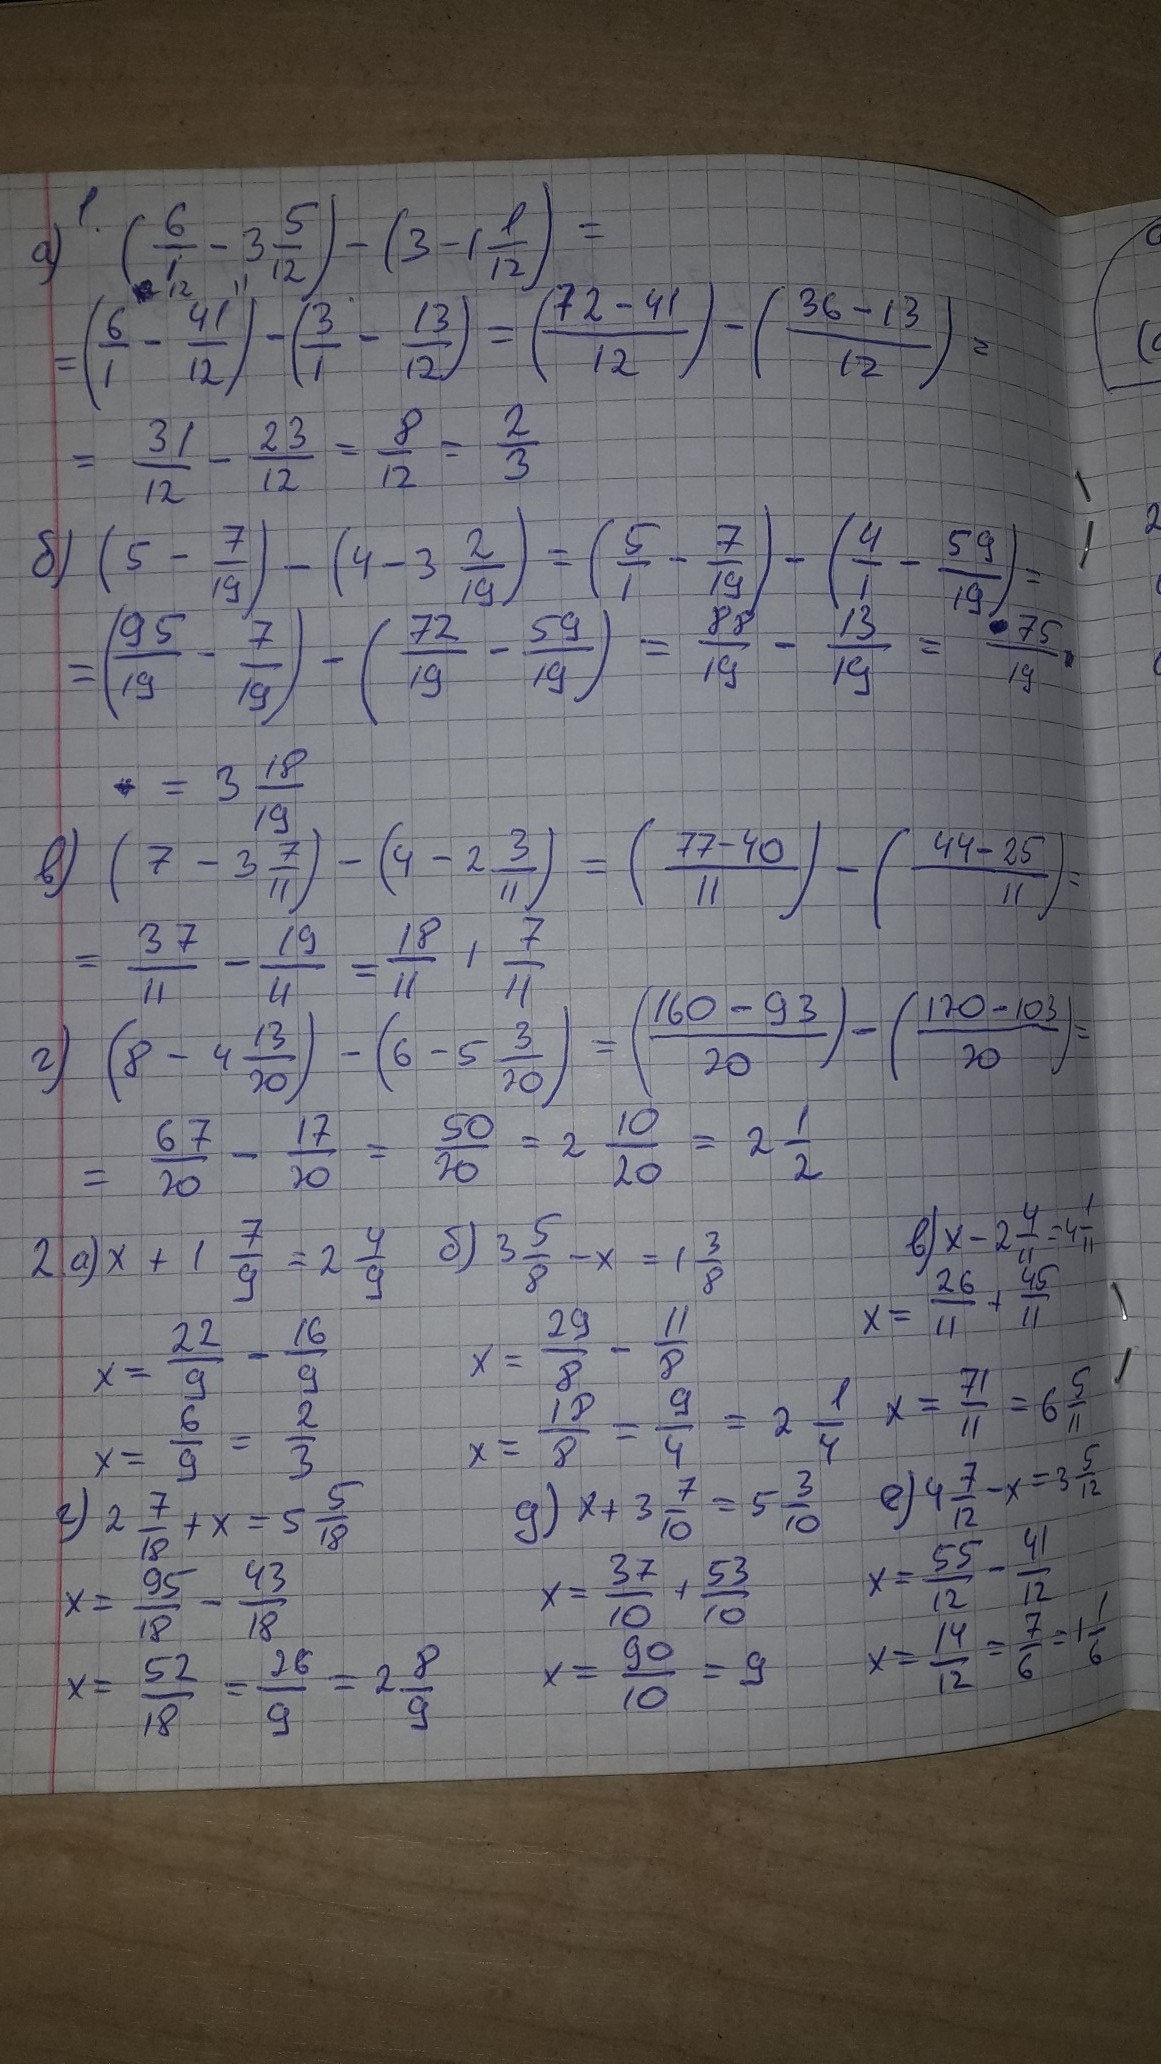 1.
а) (6/1 - 3 5/12) - (3 - 1 1/12) =
= (6/1 - 41/12) - (3/1 - 13/12) = (72-41/12) - (36-13/12) =
= 31/12 - 23/12 = 8/12 = 2/3
б) (5 - 7/19) - (4 - 3 2/19) = (5/1 - 7/19) - (4/1 - 59/19) =
= (95/19 - 7/19) - (72/19 - 59/19) = 88/19 - 13/19 = 75/19
= 3 18/19
в) (7 - 3 7/11) - (4 - 2 3/11) = (77-40/11) - (44-25/11) =
= 37/11 - 19/11 = 18/11 1 7/11
г) (8 - 4 13/20) - (6 - 5 3/20) = (160-93/20) - (120-103/20) =
= 67/20 - 17/20 = 50/20 = 2 10/20 = 2 1/2
2 а) x + 1 7/9 = 2 4/9
x = 22/9 - 16/9
x = 6/9 = 2/3
б) 3 5/8 - x = 1 3/8
x = 29/8 - 11/8
x = 18/8 = 9/4 = 2 1/4
в) x - 2 4/11 = 4 1/11
x = 26/11 + 45/11
x = 71/11 = 6 5/11
г) 2 7/18 + x = 5 5/18
x = 95/18 - 43/18
x = 52/18 = 26/9 = 2 8/9
д) x + 3 7/10 = 5 3/10
x = 37/10 + 53/10
x = 90/10 = 9
е) 4 7/12 - x = 3 5/12
x = 55/12 - 41/12
x = 14/12 = 7/6 = 1 1/6